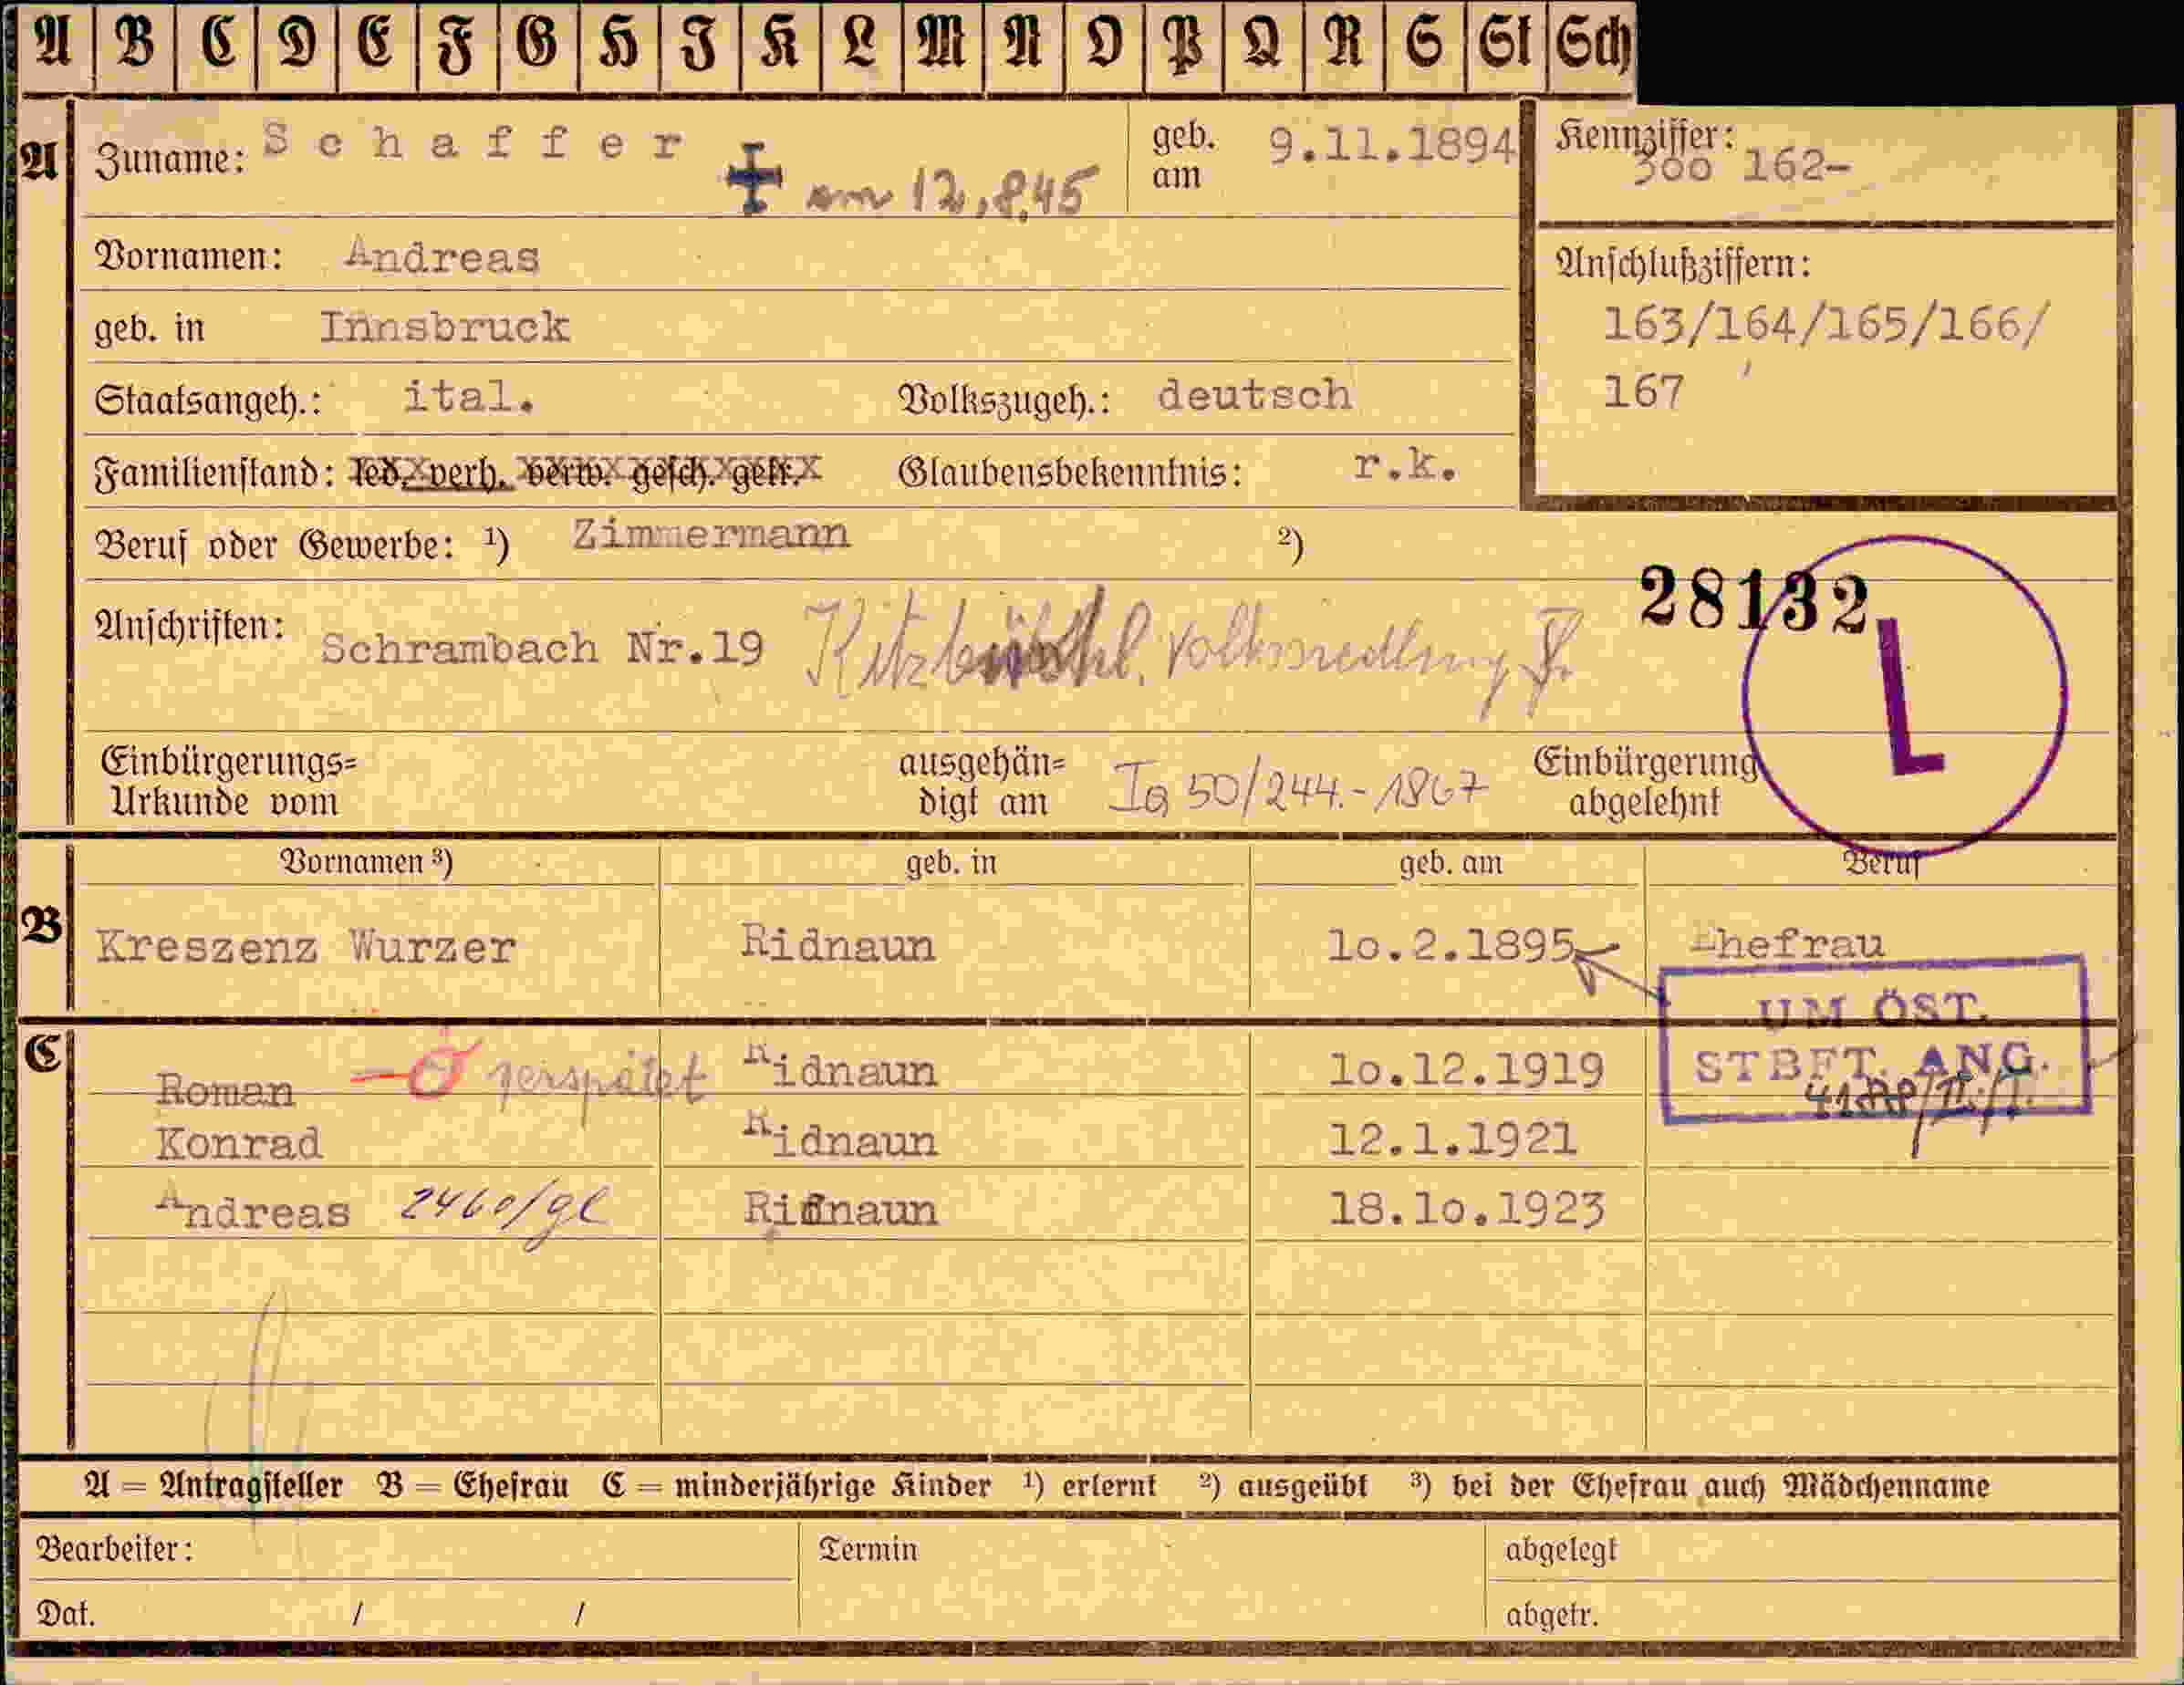 A B C D E F G H I K L M N O P Q R S St Sch
A Zuname: Schaffer + am 12.8.45 geb. am 9.11.1894 Kennziffer: 300 162-
Vornamen: Andreas
Anschlußziffern:
geb. in Innsbruck 163/164/165/166/
Staatsangeh.: ital. Volkszugeh.: deutsch 167
Familienstand: led. verh. verw. gesch. getr. Glaubensbekenntnis: r.k.
Beruf oder Gewerbe: 1) Zimmermann 2)
28132
Anschriften: Schrambach Nr.19 Kitzbühel, Volkssiedlung
L
Einbürgerungs= ausgehän= Einbürgerung
Urkunde vom digt am Ia 50/244.-1867 abgelehnt
Vornamen 3) geb. in geb. am Beruf
B Kreszenz Wurzer Ridnaun 10.2.1895 Ehefrau
UM ÖST.
STBFT. ANG.
C Roman verspätet Ridnaun 10.12.1919
Konrad Ridnaun 12.1.1921
Andreas 2460/gl Ridnaun 18.10.1923
A = Antragsteller B = Ehefrau C = minderjährige Kinder 1) erlernt 2) ausgeübt 3) bei der Ehefrau auch Mädchenname
Bearbeiter: Termin abgelegt
Dat. / / abgetr.